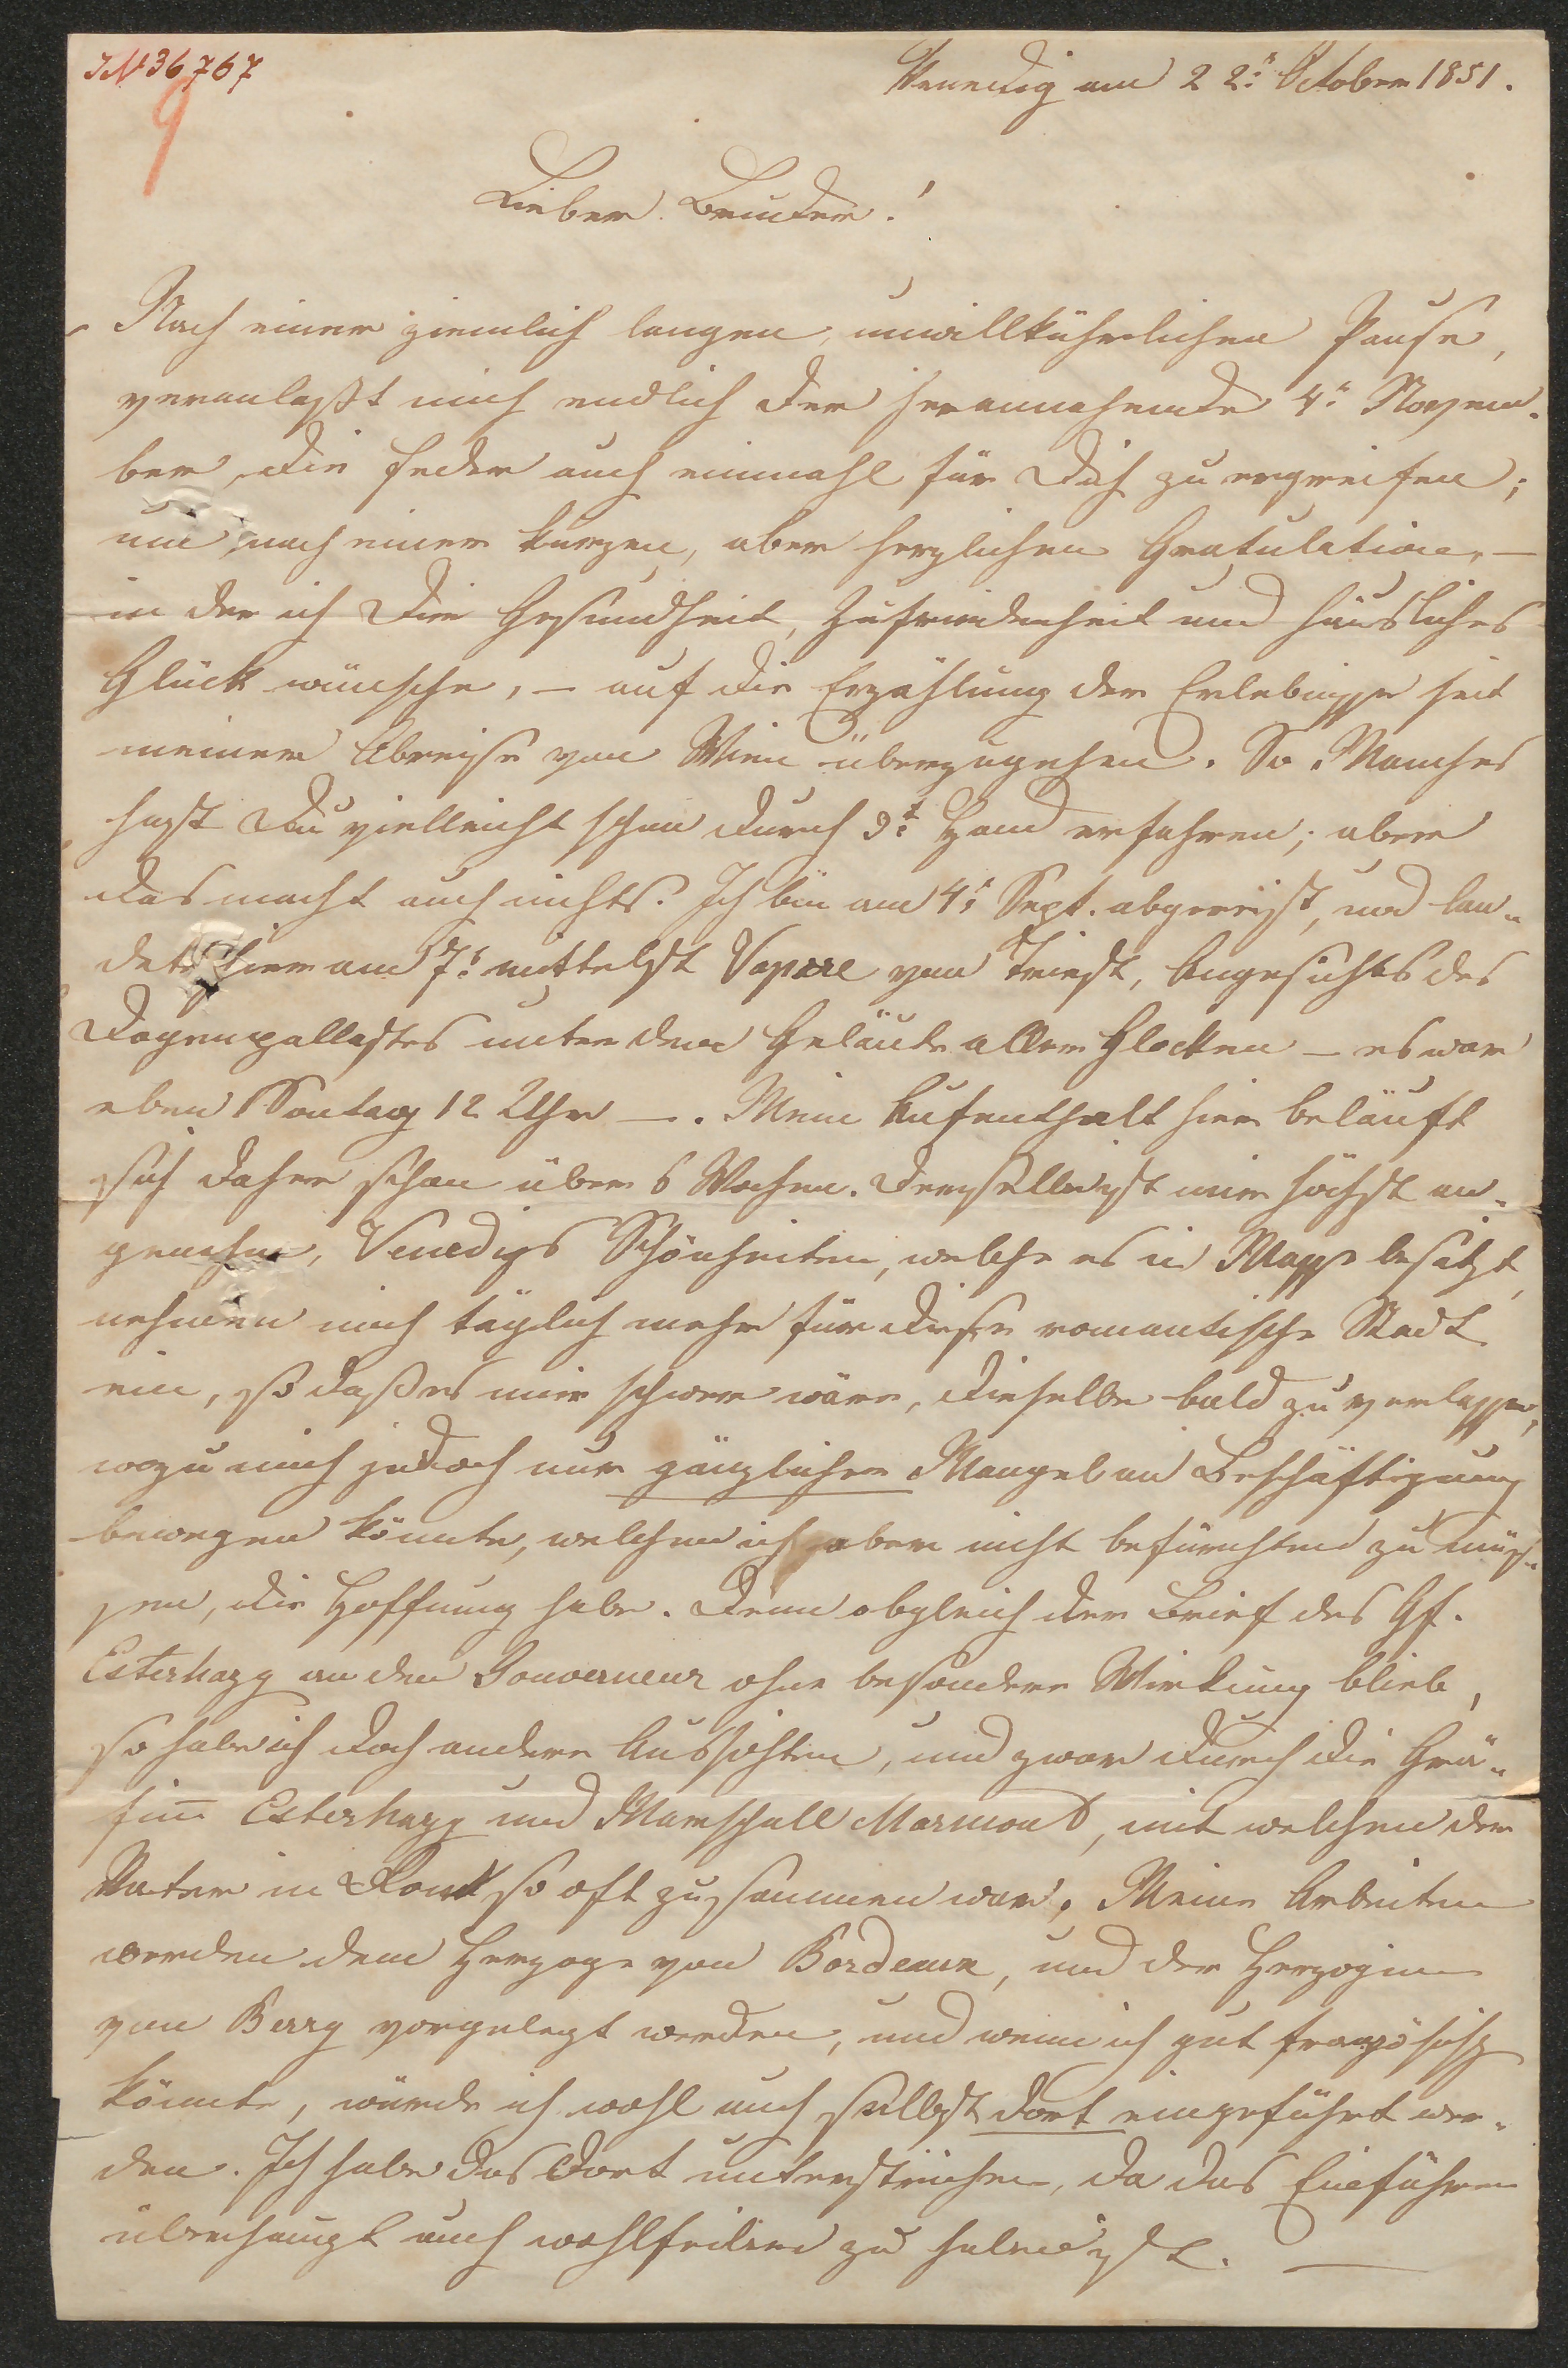 JN 36767
9
Venedig am 22: October 1851.
Lieber Bruder!
Nach einer ziemlich langen, unwillkührlichen Pause,
veranlaßt mich endlich der herannahende 4: Novem-
ber, die Feder auch einmahl für Dich zu ergreifen;
um nach einer kurzen, aber herzlichen Gratulation, —
in der ich Dir Gesundheit, Zufriedenheit und häusliches
Glück wünsche, — auf die Erzählung der Erlebnisse seit
meiner Abreise von Wien überzugehen. So Manches
hast Du vielleicht schon durch 3t: Hand erfahren; aber
das macht auch nichts. Ich bin am 4: Sept. abgereist, und lan-
dete hier am 7: mittelst Vapore von Triest, Angesichts des
Dogenpallastes unter dem Geläute aller Glocken — es war
eben Sontag 12 Uhr —. Mein Aufenthalt hier beläuft
sich daher schon über 6 Wochen. Derselbe ist mir höchst an-
genehm, Venedigs Schönheiten, welche es in Masse besitzt,
nehmen mich täglich mehr für diese romantische Stadt
ein, so daß es mir schwer wäre, dieselbe bald zu verlassen,
wozu mich jedoch nur gänzlicher Mangel an Beschäftigung
bewegen könnte, welchen ich aber nicht befürchten zu müs-
sen, die Hoffnung habe. Denn obgleich der Brief des Gf.
Esterhazy an den Gouverneur ohne besondere Wirkung blieb,
so habe ich doch andere Aussichten, und zwar durch die Grä-
fin Esterhazy und Marschall Marmont, mit welchen der
Vater in so oft zusammen war. Meine Arbeiten
werden dem Herzoge von Bordeaux, und der Herzogin
von Berry vorgelegt werden, und wenn ich gut französisch
könnte, würde ich wohl auch selbst dort eingeführt wer-
den. Ich habe das Dort unterstrichen, da das Einführen
überhaupt auch wohlfeiler zu haben ist. —